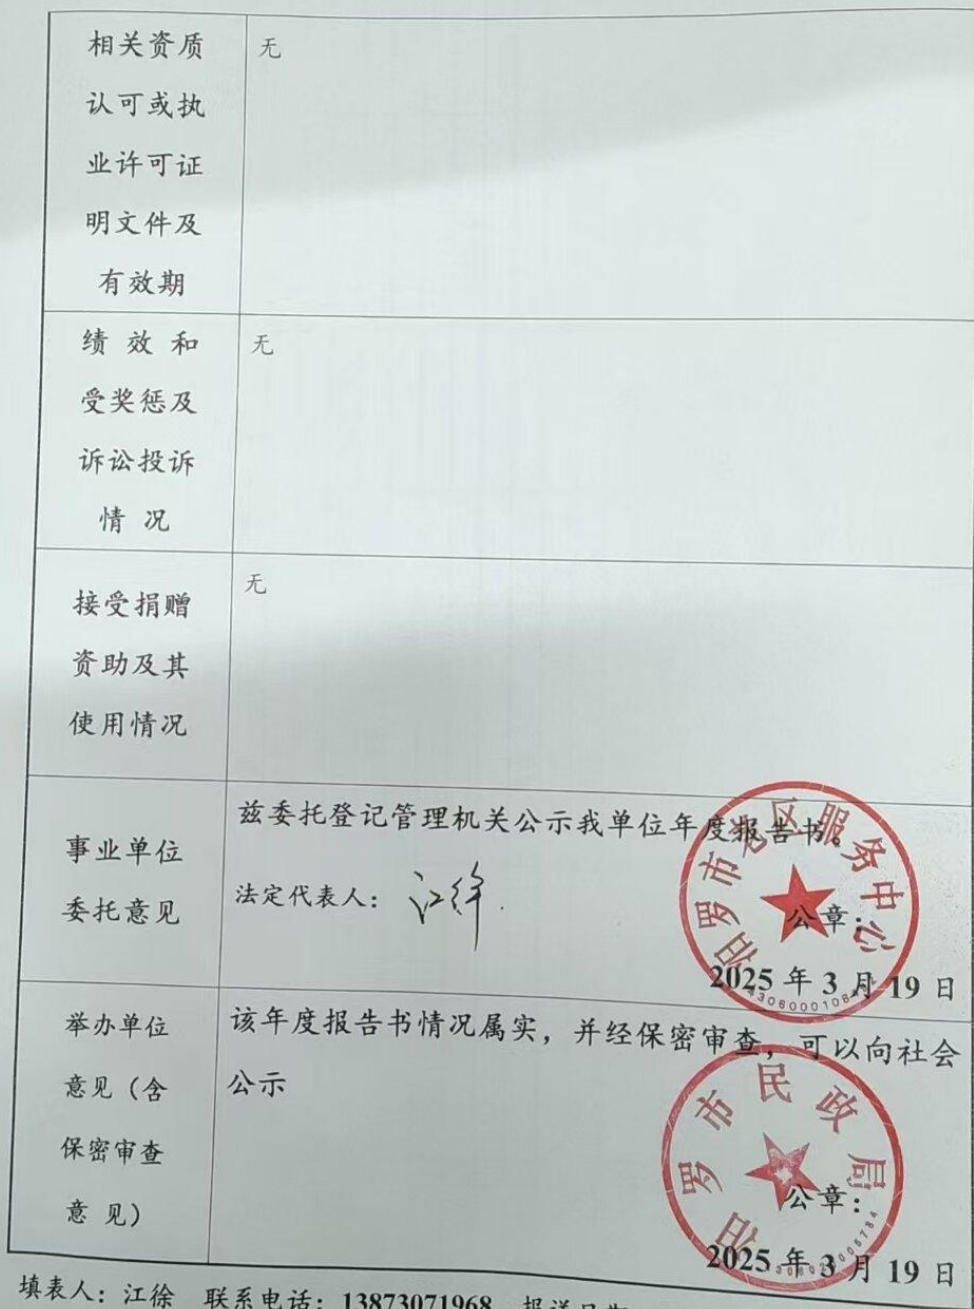 相关资质
认可或执
业许可证
明文件及
有效期
无
绩 效 和
受奖惩及
诉讼投诉
情 况
无
接受捐赠
资助及其
使用情况
无
事业单位
委托意见
兹委托登记管理机关公示我单位年度报告书。
法定代表人：江徐
汨罗市老区服务中心
公章：
2025 年 3 月 19 日
举办单位
意见（含
保密审查
意 见）
该年度报告书情况属实，并经保密审查，可以向社会
公示
汨罗市民政局
公章：
2025 年 3 月 19 日
填表人：江徐 联系电话：13873071968 报送日期